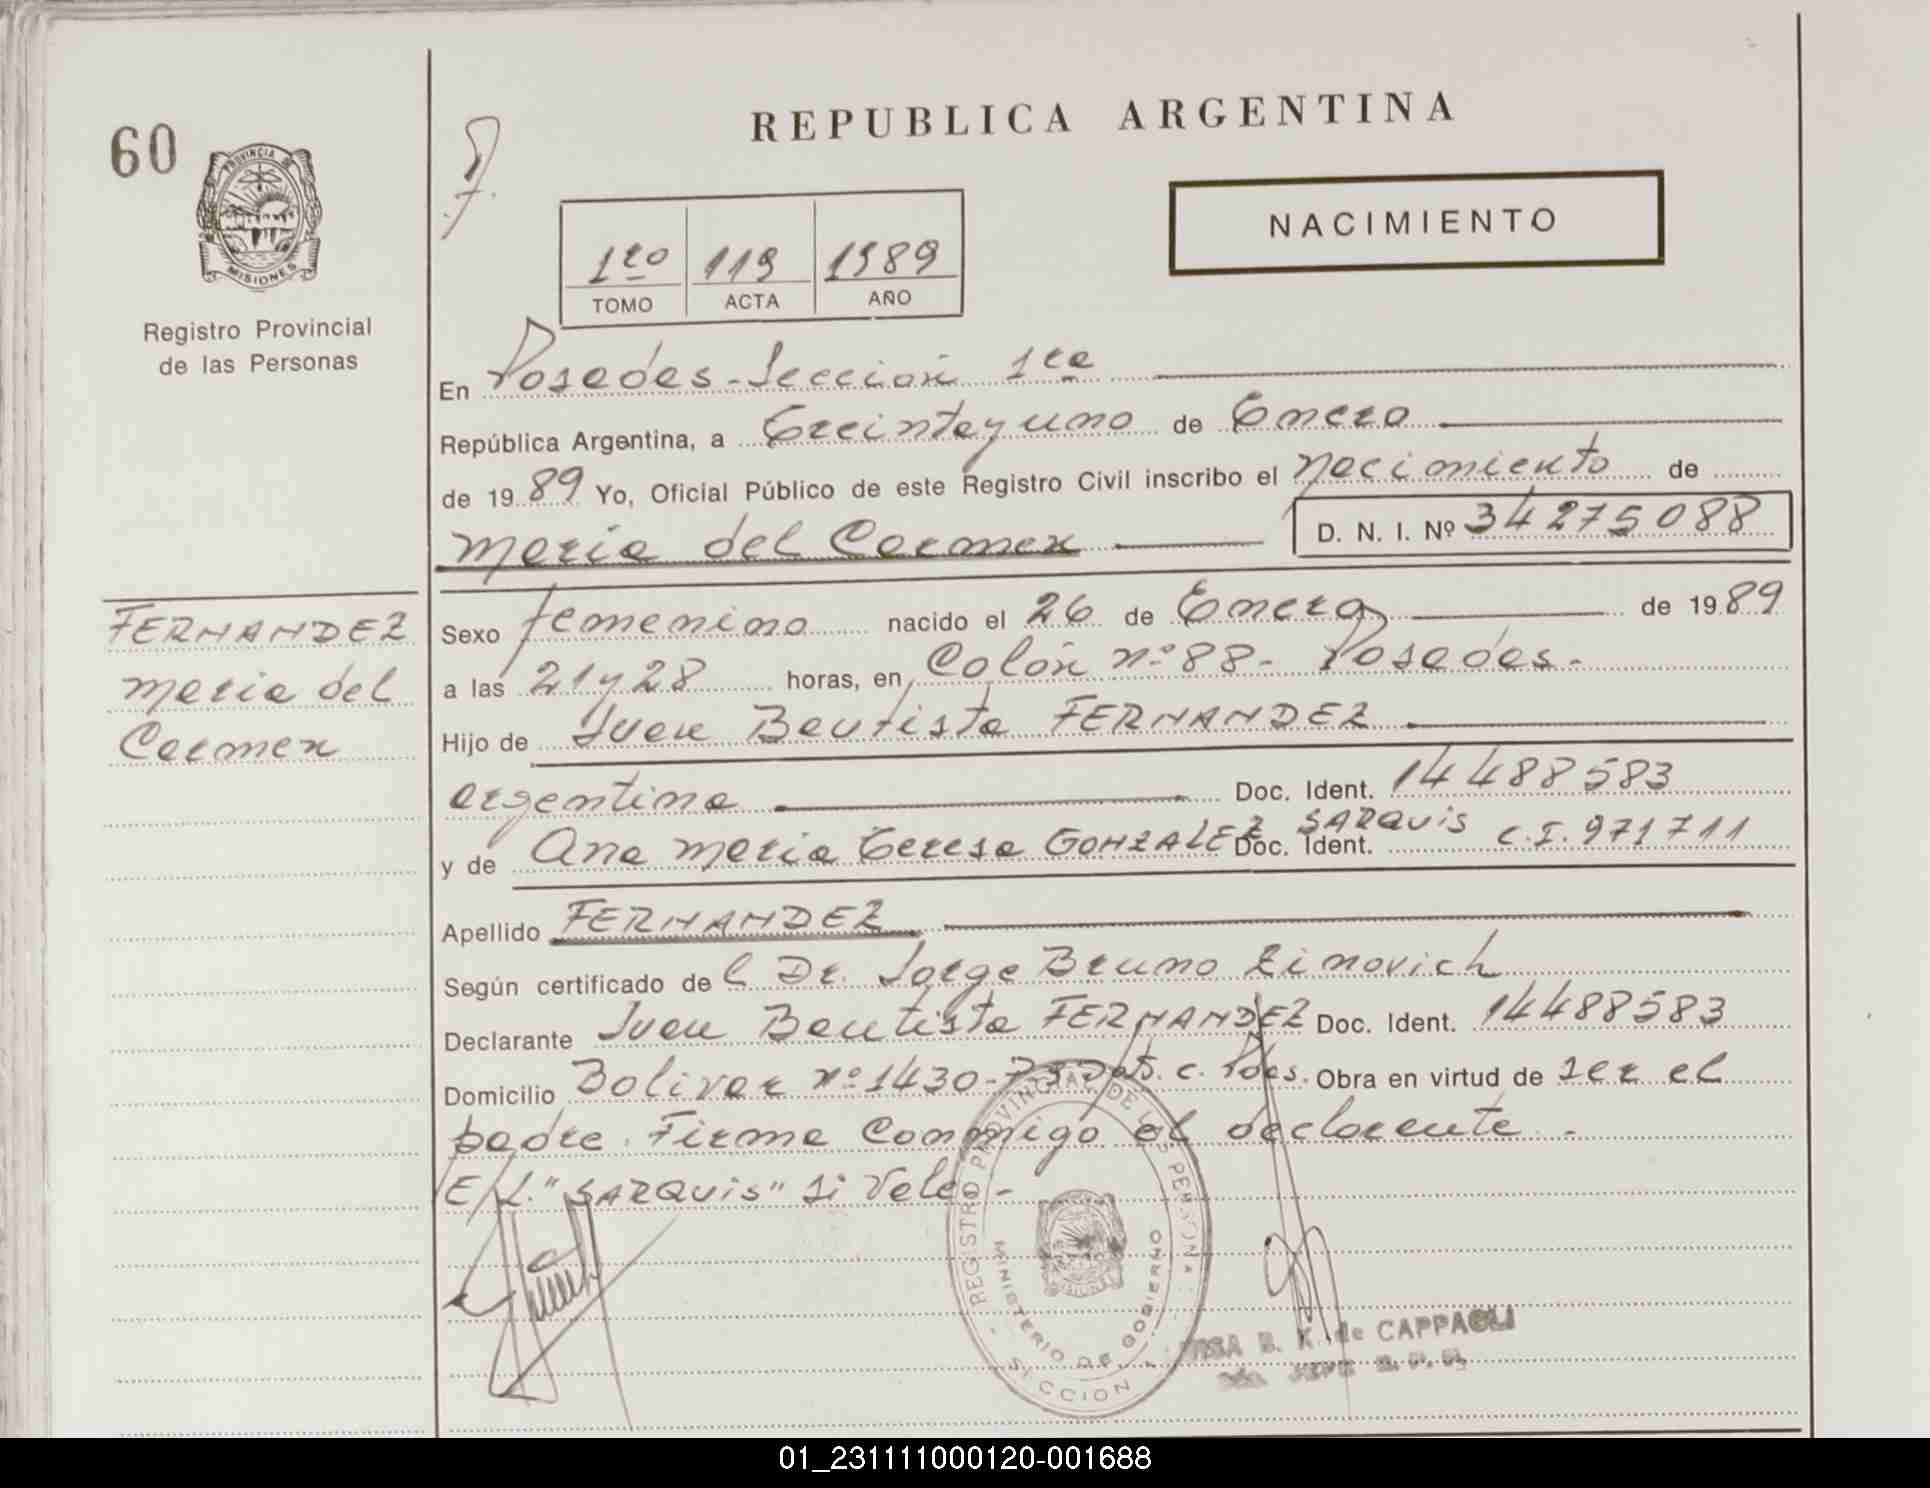 60
PROVINCIA DE
MISIONES
Registro Provincial
de las Personas
REPUBLICA ARGENTINA
NACIMIENTO
1ro 119 1989
TOMO ACTA AÑO
En Posadas-Sección 1ra
República Argentina, a Treinta y uno de Enero
de 1989 Yo, Oficial Público de este Registro Civil inscribo el nacimiento de
María del Carmen D. N. I. Nº 34275088
FERNANDEZ
María del
Carmen
Sexo femenino nacido el 26 de Enero de 1989
a las 21 y 28 horas, en Colón nº 88- Posadas.-
Hijo de Juan Bautista FERNANDEZ
argentina Doc. Ident. 14488583
SARQUIS
y de Ana María Teresa GONZALEZ Doc. Ident. C.I. 971711
Apellido FERNANDEZ
Según certificado del Dr. Jorge Bruno Zinovich
Declarante Juan Bautista FERNANDEZ Doc. Ident. 14488583
Domicilio Bolivar nº 1430- c. Pdas. Obra en virtud de ser el
padre. Firma conmigo el declarante.-
E/L. "SARQUIS" Si Vale.-
REGISTRO PROVINCIAL DE LAS PERSONAS
MINISTERIO DE GOBIERNO
SECCION
B. K. de CAPPAOLI
01_231111000120-001688